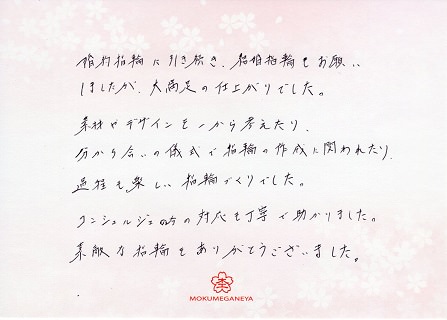 婚約指輪に引き続き、結婚指輪もお願い
しましたが、大満足の仕上がりでした。
素材やデザインを一から考えたり、
分かち合いの儀式で指輪の作成に関われたり、
過程も楽しい指輪づくりでした。
コンシェルジュの対応も丁寧で助かりました。
素敵な指輪をありがとうございました。
MOKUMEGANEYA